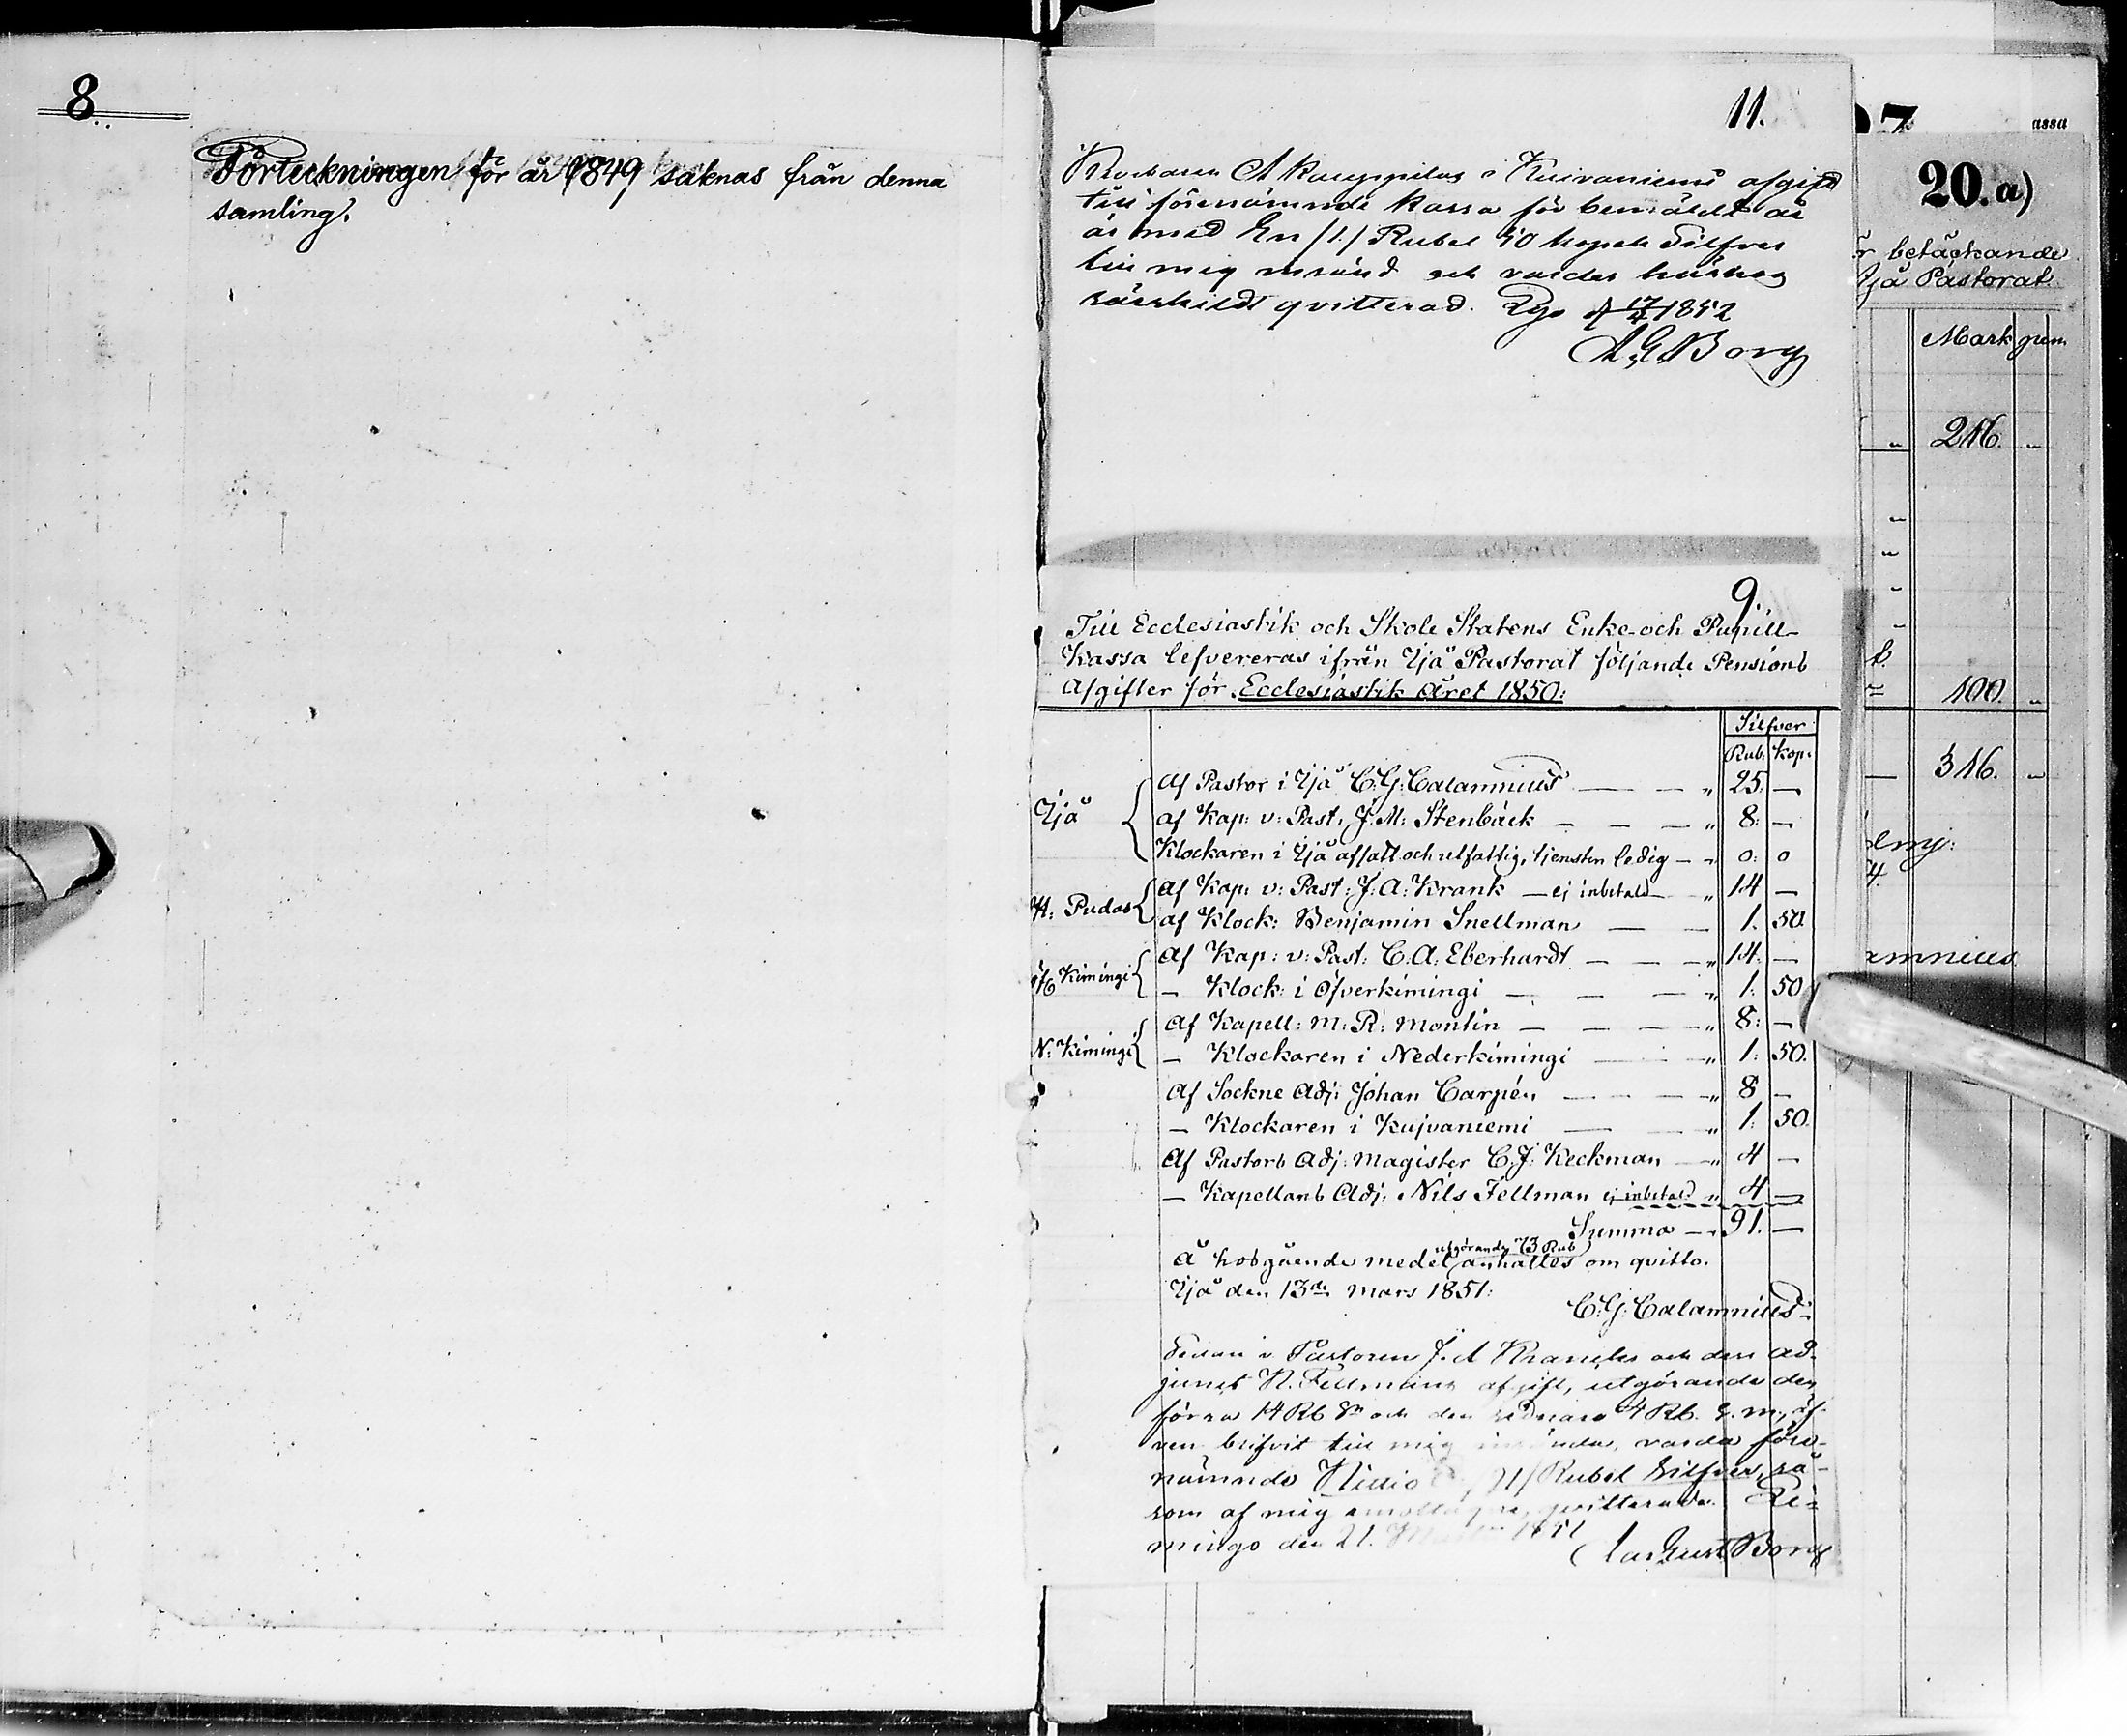 8.
Förteckningen för år 1849 saknas från denna
samling.
11.
Klockaren A Kauppilas i Kuivaniemi afgift
till förenämnde Kassa för bemäldt år
är med En /1./ Rubel 50 kopek Silfver
till mig insänd och varder härhos
särskildt qvitterad. 1852
A.G. Borg
9.
Till Ecclesiastik och Skole Statens Enke- och Pupill-
Kassa lefvereras ifrån Ijå Pastorat följande Pensions
Afgifter för Ecclesiastik Året 1850:
Silfver
Rub. Kop.
Ijå
Af Pastor i Ijå C:G: Calamnius — — „ 25. —
af Kap: v: Past: J: M: Stenbäck — — — „ 8: —
Klockaren i Ijå affatt och utfattig, tjensten ledig — „ 0: 0
H: Pudas
af Kap: v: Past: J: A: Krank — ej inbetald — „ 14 —
af Klock: Benjamin Snellman — — 1. 50.
Öf: Kimingi
Af Kap: v: Past: C. A. Eberhardt — — — „ 14. —
— Klock: i Öfverkimingi — — — „ 1: 50
N: Kimingi
Af Kapell: M: R: Montin — — — — „ 8: —
— Klockaren i Nederkimingi — — — „ 1: 50.
Af Sockne Adj: Johan Carpén — — — „ 8 —
— Klockaren i Kujvaniemi — — „ 1: 50.
Af Pastors Adj: Magister C. J. Keckman — „ 4 —
— Kapellans Adj: Nils Fellman ej inbetald „ 4 —
Summa — 91. —
utgörande 73 Rub
Å hosgående medel anhålles om qvitto.
Ijå den 13de Mars 1851:
C: G: Calamnius
Sedan v Pastoren J. A Krancks och dess ad-
junct N. Fellmans afgift, utgörande den
förra 14 Rb Sr och den sednare 4 Rb. S. m., äf-
ven blifvit till mig insända, varda före-
nämnde Nittio /91/ Rubel Silfver, så-
som af mig emottagne, qvitterade. Ki-
mingo den 21. 1851
Borg
assa
20.a)
r betäckande
Ijå Pastorat
Mark pem.
„ 216. „
„
„
„
100. „
— 316. „
4.
amnius